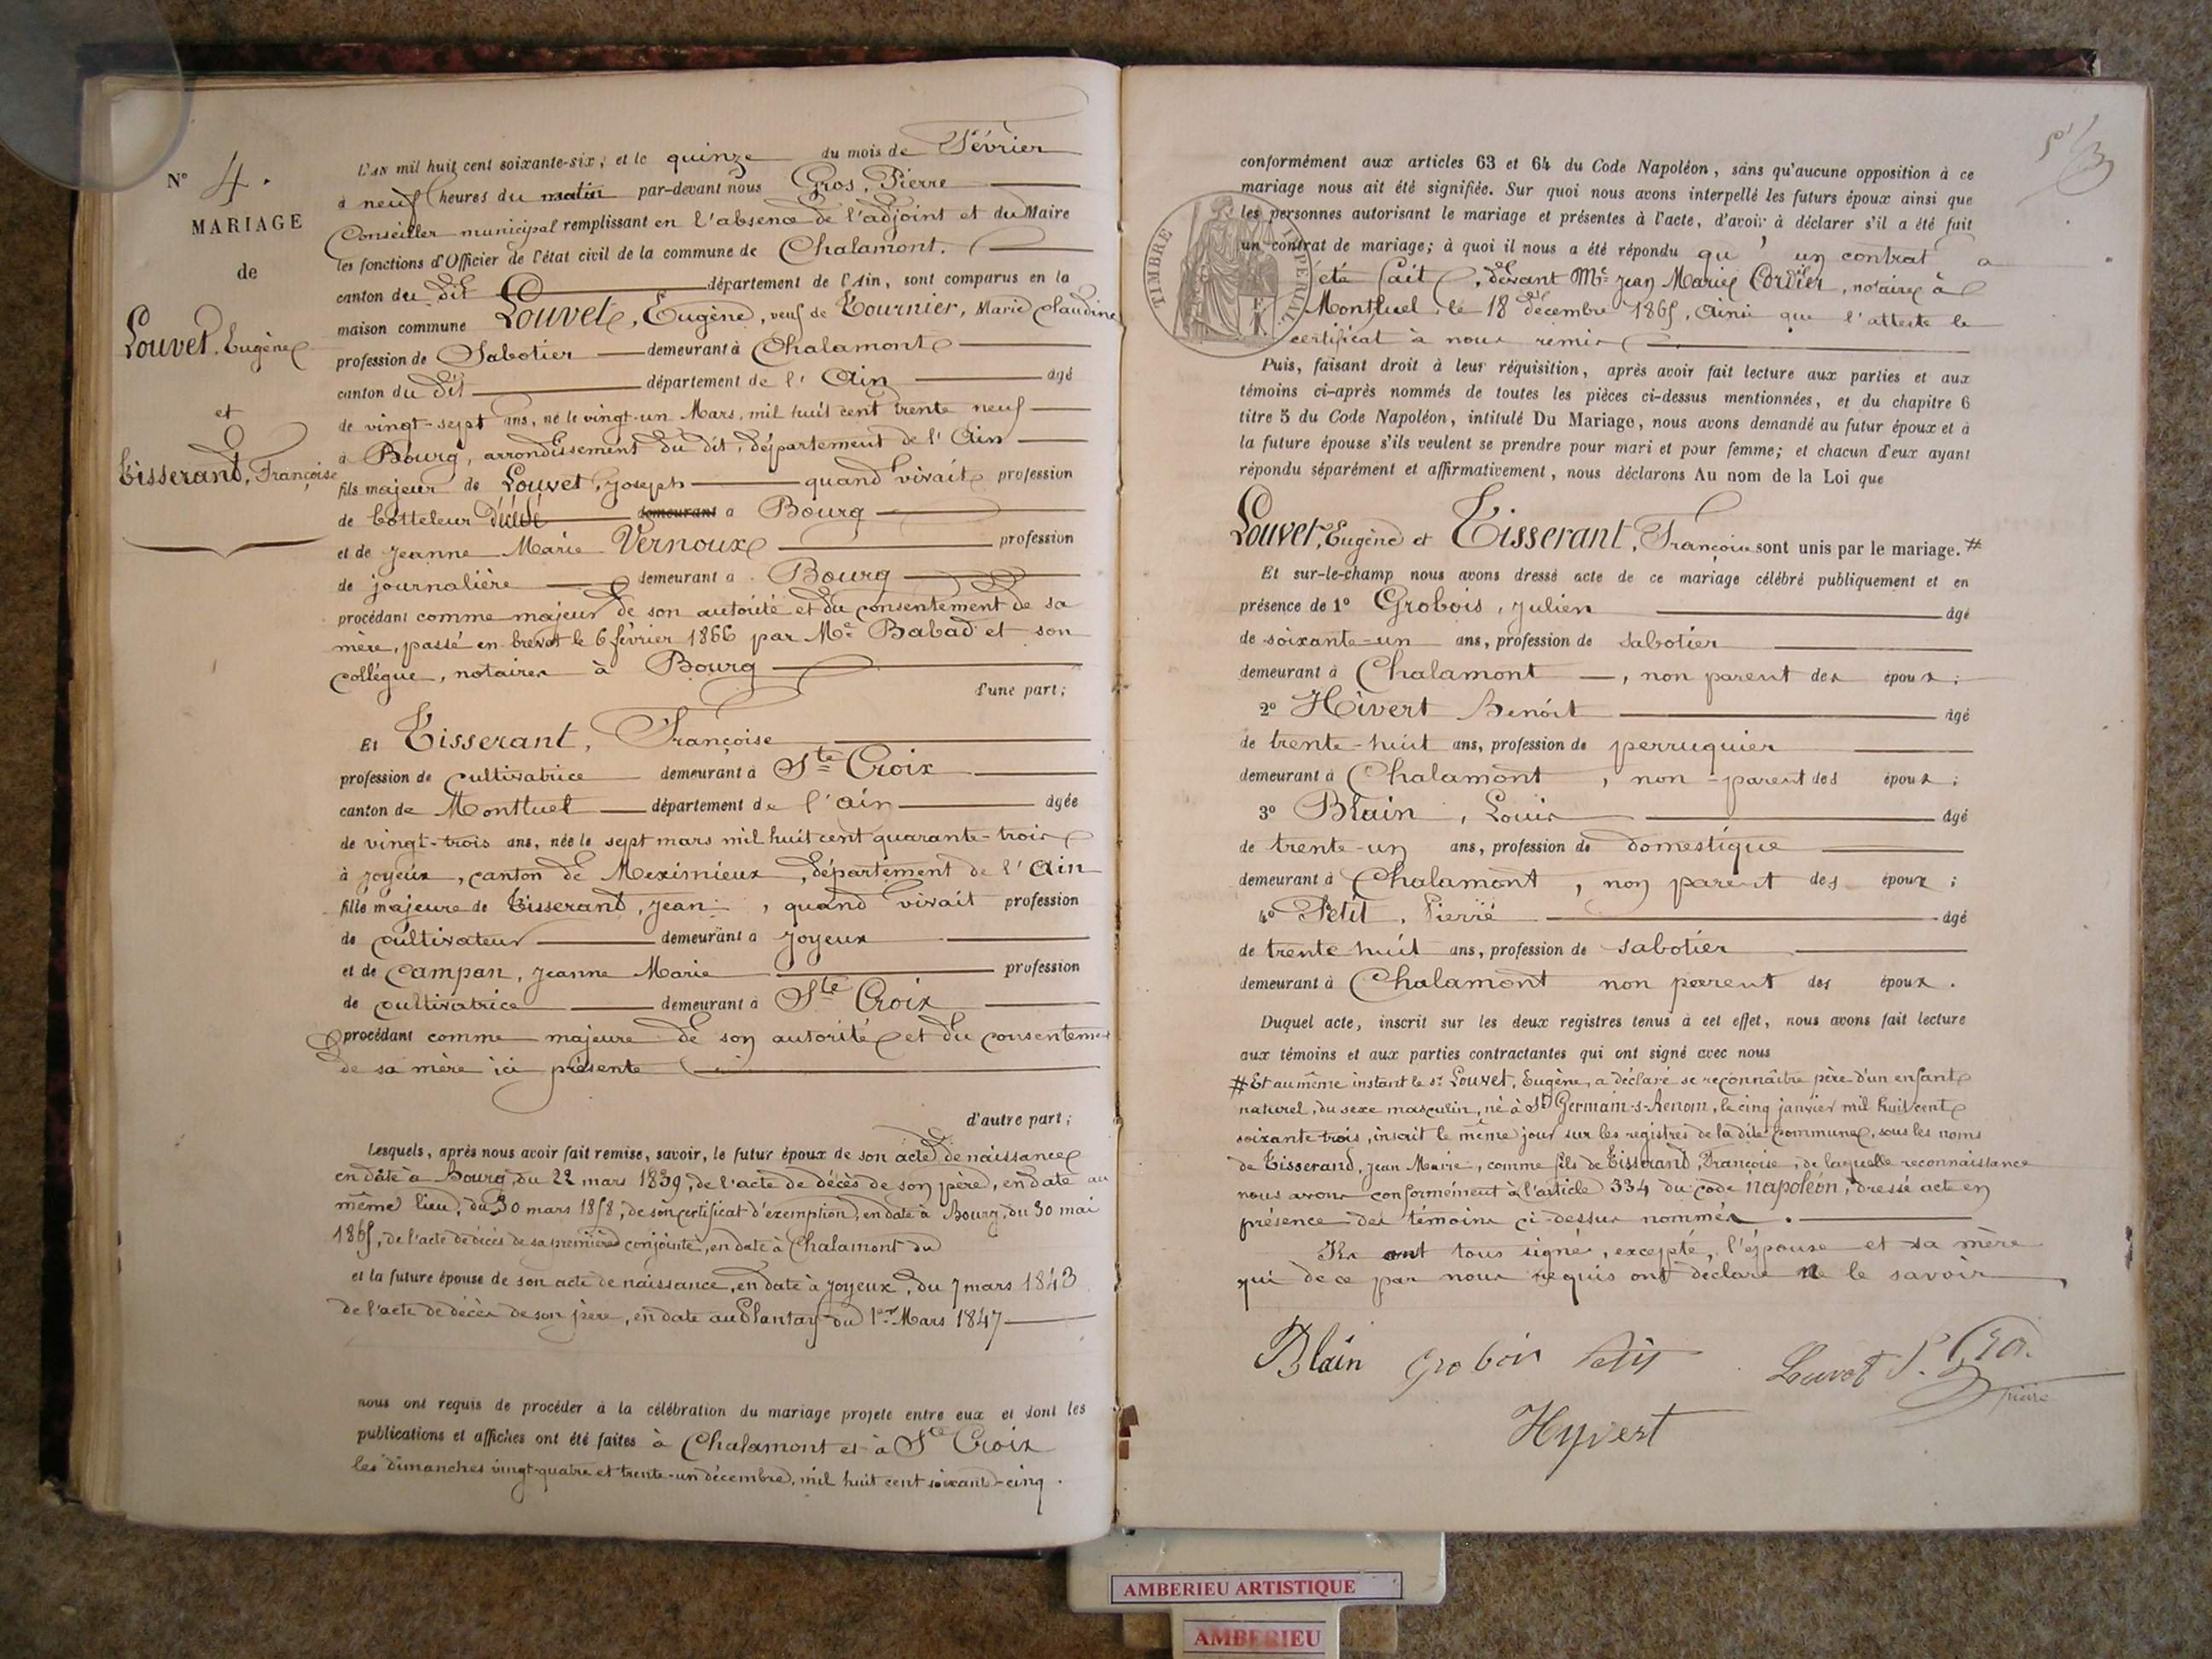 N° 4.
MARIAGE
de
Louvet, Eugène
et
Tisserand, Françoise
L'AN mil huit cent soixante-six, et le quinze du mois de Février
à neuf heures du matin par-devant nous Gros, Pierre
Conseiller municipal remplissant en l'absence de l'adjoint et du Maire
les fonctions d'Officier de l'état civil de la commune de Chalamont.
canton du dit département de l'Ain, sont comparus en la
maison commune Louvet, Eugène, veuf de Tournier, Marie Claudine
profession de Sabotier demeurant à Chalamont
canton du dit département de l'Ain âgé
de vingt-sept ans, né le vingt-un Mars, mil huit cent trente neuf
à Bourg, arrondissement du dit, département de l'Ain
fils majeur de Louvet, Joseph quand vivait profession
de botteleur demeurant à Bourg
et de Jeanne Marie Vernoux profession
de journalière demeurant à Bourg
procédant comme majeur de son autorité et du consentement de sa
mère, passé en brevet le 6 février 1866 par Me Babad et son
collégue, notaires à Bourg
d'une part;
Et Tisserant, Françoise
profession de cultivatrice demeurant à Ste Croix
canton de Montluel département de l'Ain âgée
de vingt-trois ans, née le sept mars mil huit cent quarante-trois
à Joyeux, canton de Meximieux, département de l'Ain
fille majeure de Tisserand, Jean, quand vivait profession
de cultivateur demeurant à Joyeux
et de Campan, Jeanne Marie profession
de cultivatrice demeurant à Ste Croix
procédant comme majeure de son autorité et du consentement
de sa mère ici présente
d'autre part;
Lesquels, après nous avoir fait remise, savoir, le futur époux de son acte de naissance
en date à Bourg, du 22 mars 1839, de l'acte de décès de son père, en date au
même lieu, du 30 mars 1858, de son certificat d'exemption, en date à Bourg, du 30 mai
1865, de l'acte de décès de sa première conjointe, en date à Chalamont du
et la future épouse de son acte de naissance, en date à Joyeux, du 7 mars 1843
de l'acte de décès de son père, en date au Plantay du 1er Mars 1847
nous ont requis de procéder à la célébration du mariage projeté entre eux et dont les
publications et affiches ont été faites à Chalamont et à Ste Croix
les dimanches vingt-quatre et trente-un décembre, mil huit cent soixante-cinq.
TIMBRE IMPERIAL
conformément aux articles 63 et 64 du Code Napoléon, sans qu'aucune opposition à ce
mariage nous ait été signifiée. Sur quoi nous avons interpellé les futurs époux ainsi que
les personnes autorisant le mariage et présentes à l'acte, d'avoir à déclarer s'il a été fait
un contrat de mariage; à quoi il nous a été répondu qu'un contrat a
été fait, devant Me Jean Marie Cordier, notaire à
Montluel, le 18 décembre 1865, ainsi que l'atteste le
certificat à nous remis
Puis, faisant droit à leur réquisition, après avoir fait lecture aux parties et aux
témoins ci-après nommés de toutes les pièces ci-dessus mentionnées, et du chapitre 6
titre 5 du Code Napoléon, intitulé Du Mariage, nous avons demandé au futur époux et à
la future épouse s'ils veulent se prendre pour mari et pour femme; et chacun d'eux ayant
répondu séparément et affirmativement, nous déclarons Au nom de la Loi que
Louvet, Eugène et Tisserant, Françoise sont unis par le mariage. #
Et sur-le-champ nous avons dressé acte de ce mariage célébré publiquement et en
présence de 1° Grobois, Julien âgé
de soixante-un ans, profession de sabotier
demeurant à Chalamont, non parent des époux;
2° Hivert Benoit âgé
de trente-huit ans, profession de perruquier
demeurant à Chalamont, non-parent des époux;
3° Blain, Louis âgé
de trente-un ans, profession de domestique
demeurant à Chalamont, non parent des époux;
4° Petit, Pierre âgé
de trente huit ans, profession de sabotier
demeurant à Chalamont non parent des époux.
Duquel acte, inscrit sur les deux registres tenus à cet effet, nous avons fait lecture
aux témoins et aux parties contractantes qui ont signé avec nous
# Et au même instant le sr Louvet, Eugène, a déclaré se reconnaître père d'un enfant
naturel, du sexe masculin, né à St Germain-s-Renom, le cinq janvier mil huit cent
soixante trois, inscrit le même jour sur les registres de la dite commune, sous les noms
de Tisserand, Jean Marie, comme fils de Tisserand, Françoise, de laquelle reconnaissance
nous avons conformément à l'article 334 du code napoléon, dressé acte en
présence des témoins ci-dessus nommés.
Ils ont tous signé, excepté, l'épouse et sa mère
qui de ce par nous requis ont déclaré ne le savoir
Blain Grobois Petit Louvet P. Gros
Hyvert
AMBERIEU ARTISTIQUE
AMBERIEU